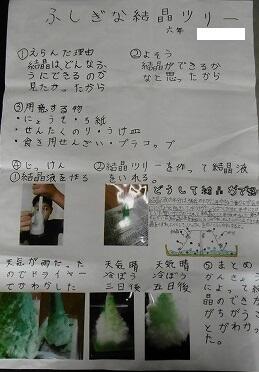 ふしぎな結晶ツリー
六年
①えらんだ理由
結晶はどんなふ
うにできるのか
見たかったから
②よそう
結晶ができるか
なと思ったから
③用意する物
・にょうそ・ろ紙
・せんたくのり・うけ皿
・食き用せんざい・プラコップ
④じっけん
①結晶液を作る
②結晶ツリーを作って結晶液
をいれる。
どうして結晶が
天気が雨だった
のでドライヤー
でかわかした
天気 晴
冷ぼう
三日後
天気 晴
冷ぼう
五日後
⑤まとめ
かんきょう
によって結
晶のでき
がちがうこ
とがわかっ
た。